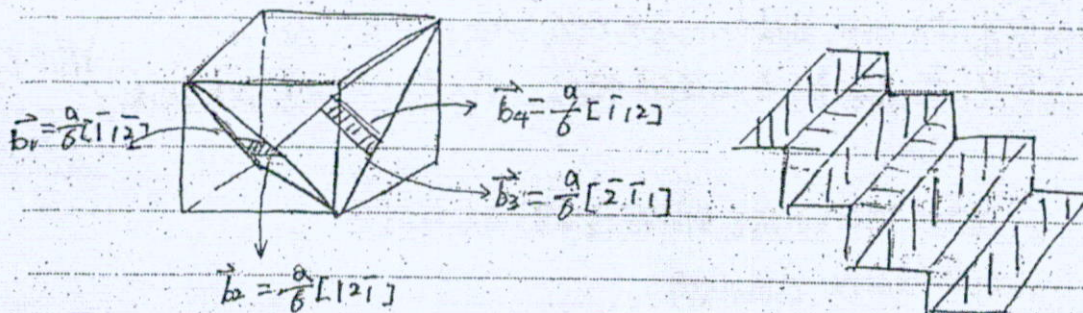 b₁⃗ = a/6 [1̄12̄]
b₄⃗ = a/6 [1̄12]
b₃⃗ = a/6 [2̄1̄1]
b₂⃗ = a/6 [121̄]